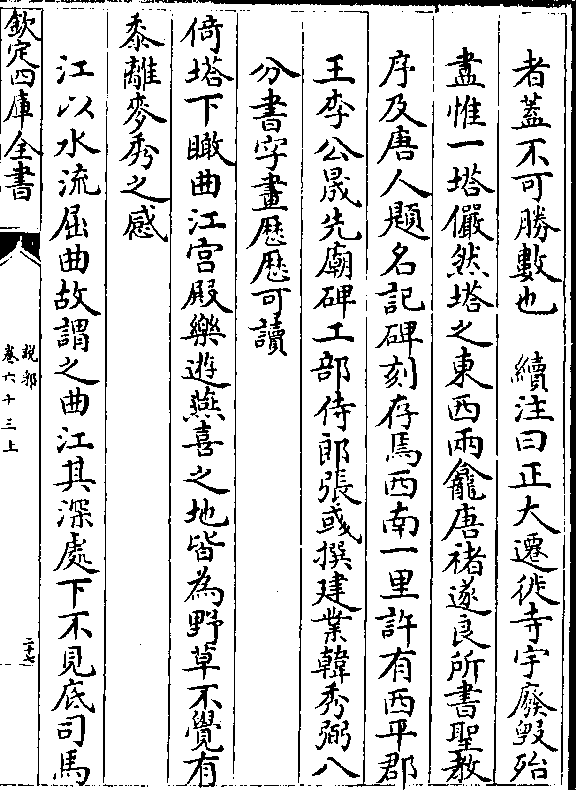 者蓋不可勝數也　續注曰正大遷徙寺宇廢毀殆
盡惟一塔儼然塔之東西兩龕唐褚遂良所書聖教
序及唐人題名記碑刻存焉西南一里許有西平郡
王李公晟先廟碑工部侍郎張彧撰建業韓秀弼八
分書字畫歷歷可讀
倚塔下瞰曲江宫殿樂遊燕喜之地皆為野草不覺有
黍離麥秀之感
江以水流屈曲故謂之曲江其深處下不見底司馬
欽定四庫全書
說郛
卷六十三上
二十七